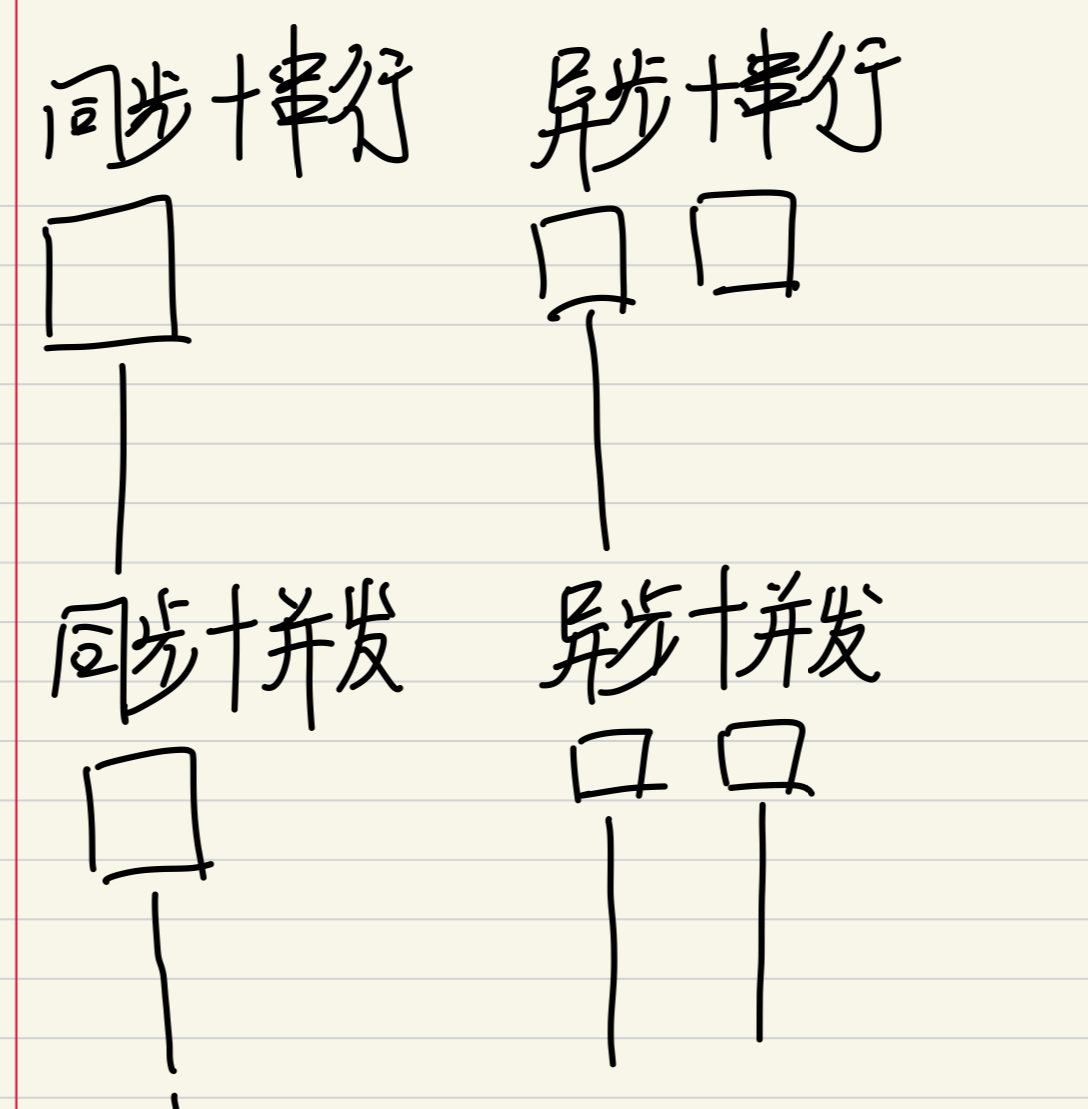 同步+串行
异步+串行
同步+并发
异步+并发